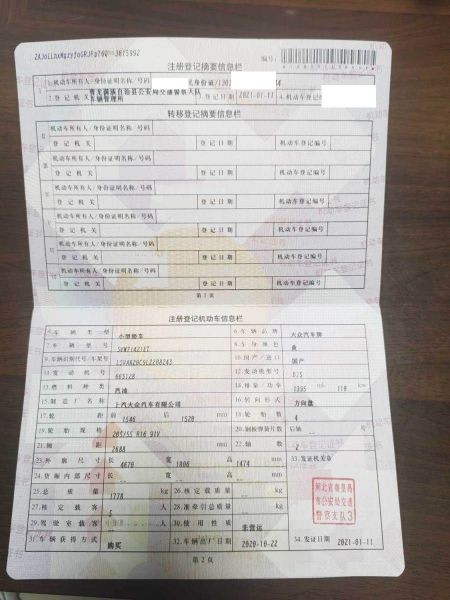 编号:
注册登记摘要信息栏
1.机动车所有人/身份证明名称/号码 居民身份证/130
2.登记机关 青龙满族自治县公安局交通警察大队车辆管理所 3.登记日期 2021-01-11 4.机动车登记编号
转移登记摘要信息栏
机动车所有人/身份证明名称/号码
登记机关 登记日期 机动车登记编号
机动车所有人/身份证明名称/号码
登记机关 登记日期 机动车登记编号
机动车所有人/身份证明名称/号码
登记机关 登记日期 机动车登记编号
机动车所有人/身份证明名称/号码
登记机关 登记日期 机动车登记编号
机动车所有人/身份证明名称/号码
登记机关 登记日期 机动车登记编号
机动车所有人/身份证明名称/号码
登记机关 登记日期 机动车登记编号
第1页
注册登记机动车信息栏
5.车辆类型 小型轿车 6.车辆品牌 大众汽车牌
7.车辆型号 8.车身颜色
9.车辆识别代号/车架号 10.国产/进口 国产
11.发动机号 663128 12.发动机型号 DJS
13.燃料种类 汽油 14.排量/功率 1395 ml 110 kw
15.制造厂名称 上汽大众汽车有限公司 16.转向形式 方向盘
17.轮距 前 1546 后 1520 mm 18.轮胎数 4
19.轮胎规格 205/55 R16 91V 20.钢板弹簧片数 后轴 片
21.轴距 2688 mm 22.轴数 2
23.外廓尺寸 长 4670 宽 1806 高 1474 mm 33.发证机关章
24.货厢内部尺寸 长 宽 高 mm
25.总质量 1778 kg 26.核定载质量 kg
27.核定载客 5 人 28.准牵引总质量 kg
29.驾驶室载客 人 30.使用性质 非营运
河北省秦皇岛市公安局交通警察支队3
31.车辆获得方式 购买 32.车辆出厂日期 2020-10-22 34.发证日期 2021-01-11
第2页